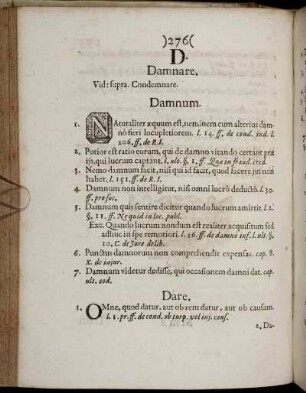 )276(
D.
Damnare,
Vid: supra. Condemnare.
Damnum.
1. NAturaliter æquum est, neminem cum alterius dam-
nô fieri locupletiorem. l. 14. ff. de cond. ind. l.
206. ff. de R. I.
2. Potior est ratio eorum, qui de damno vitando certant præ
ijs, qui lucrum captant. l. ult. §. 1. ff. Quæ in fraud. cred.
3. Nemo damnum facit, nisi qui id facit, quod facere jus non
habet. l. 151. ff. de R. I.
4. Damnum non intelligitur, nisi omni lucrô deductô. l. 30.
ff. pro soc.
5. Damnum quis sentire dicitur quando lucrum amittit l. 2.
§. 11. ff. Ne quid in loc. publ.
Exc. Quando lucrum nondum est realiter acquisitum sed
adhuc in spe remotiori. l. 26. ff. de damno inf. l. ult. §.
10. C. de Jure delib.
6. Punctus damnorum non comprehendit expensas. cap. 8.
X. de injur.
7. Damnum videtur dedisse, qui occasionem damni dat. cap.
ult. eod.
Dare,
1. OMne, quod datur, aut ob rem datur, aut ob causam.
l. 1. pr. ff. de cond. ob turp. vel inj. caus.
2, Da-